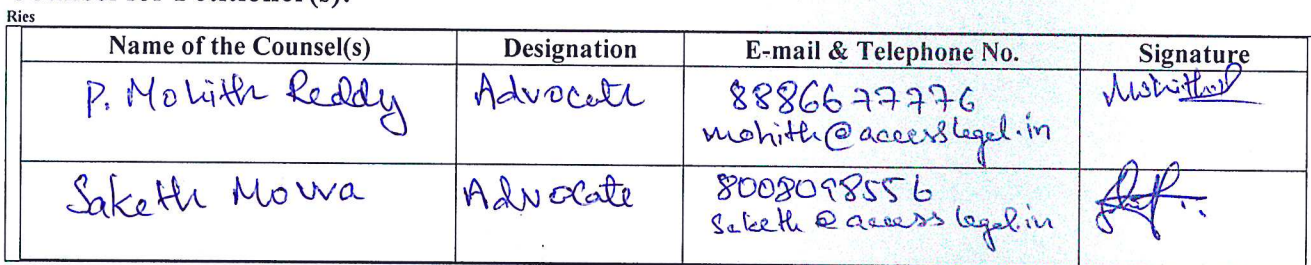 Ries
Name of the Counsel(s) Designation E-mail & Telephone No. Signature
P. Mohith Reddy Advocate 8886677776 Mohith
mohith@accesslegal.in
Saketh Mowa Advocate 8008098556
saketh@accesslegal.in